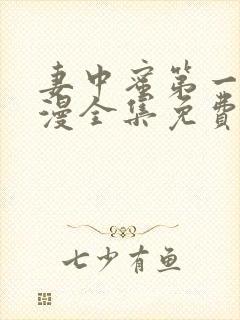 妻中蜜第一
漫全集免费
七少有鱼